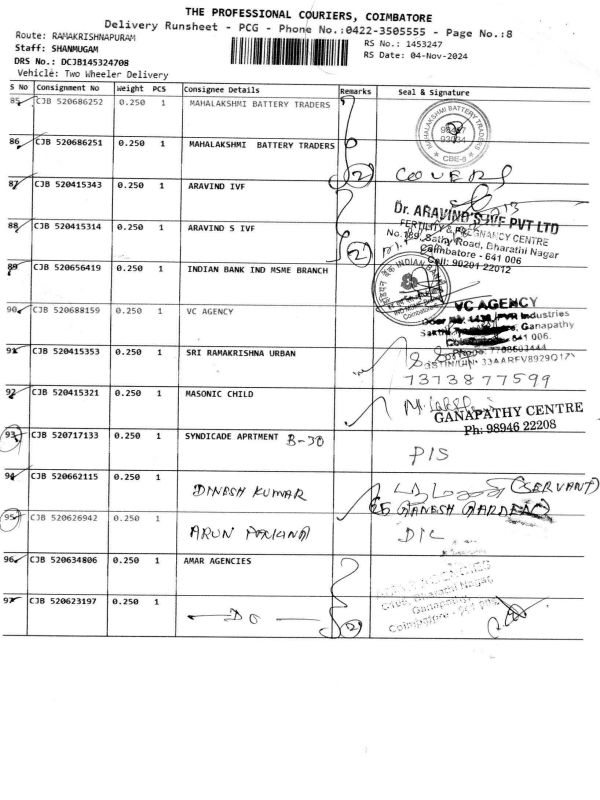 THE PROFESSIONAL COURIERS, COIMBATORE
Delivery Runsheet - PCG - Phone No.:0422-3505555 - Page No.:8
Route: RAMAKRISHNAPURAM
RS No.: 1453247
Staff: SHANMUGAM
RS Date: 04-Nov-2024
DRS No.: DCJB145324708
Vehicle: Two Wheeler Delivery
S No Consignment No Weight PCS Consignee Details Remarks Seal & Signature
85 CJB 520686252 0.250 1 MAHALAKSHMI BATTERY TRADERS
MAHALAKSHMI BATTERY TRADERS
CBE-6
86 CJB 520686251 0.250 1 MAHALAKSHMI BATTERY TRADERS
2 COVERS
87 CJB 520415343 0.250 1 ARAVIND IVF
Dr. ARAVIND'S IVF PVT LTD
FERTILITY & PREGNANCY CENTRE
88 CJB 520415314 0.250 1 ARAVIND S IVF
No.189, Sathy Road, Bharathi Nagar
Coimbatore - 641 006
2
Cell: 90201 22012
89 CJB 520656419 0.250 1 INDIAN BANK IND MSME BRANCH
90 CJB 520688159 0.250 1 VC AGENCY
VC AGENCY
PVR Industries
Ganapathy
641 006.
91 CJB 520415353 0.250 1 SRI RAMAKRISHNA URBAN
Phone: 7708603444
7373877599
92 CJB 520415321 0.250 1 MASONIC CHILD
GANAPATHY CENTRE
Ph: 98946 22208
93 CJB 520717133 0.250 1 SYNDICADE APRTMENT B-30
P/S
94 CJB 520662115 0.250 1
DINESH KUMAR
(SERVANT)
GANESH GARDEN
95 CJB 520626942 0.250 1
ARUN
D/L
96 CJB 520634806 0.250 1 AMAR AGENCIES
Bharathi Nagar
Ganapathy
Coimbatore
97 CJB 520623197 0.250 1
DO
2